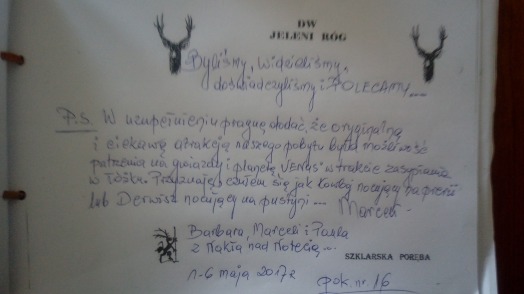 DW
JELENI RÓG
Byliśmy, widzieliśmy,
doświadczyliśmy i POLECAMY...
P.S. W uzupełnieniu pragnę dodać, że oryginalną
i ciekawą atrakcją naszego pobytu była możliwość
patrzenia na gwiazdy i planetę "VENUS" w trakcie zasypiania
w łóżku. Przyznaję, czułem się jak kowboj nocujący na prerii
lub Derwisz nocujący na pustyni... Marceli
Barbara, Marceli i Paula
z Nakła nad Notecią...
SZKLARSKA PORĘBA
1-6 maja 2017r
pok. nr 16